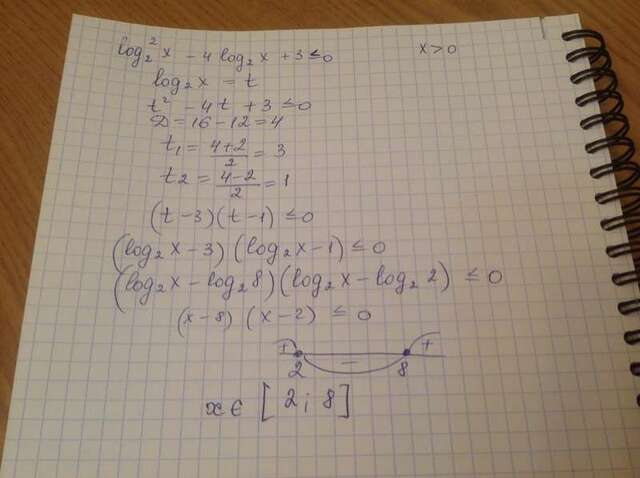 log₂²x - 4log₂x + 3 ≤ 0 x > 0
log₂x = t
t² - 4t + 3 ≤ 0
D = 16 - 12 = 4
t₁ = (4+2)/2 = 3
t₂ = (4-2)/2 = 1
(t-3)(t-1) ≤ 0
(log₂x - 3)(log₂x - 1) ≤ 0
(log₂x - log₂8)(log₂x - log₂2) ≤ 0
(x-8)(x-2) ≤ 0
+ - +
2 8
x ∈ [2; 8]